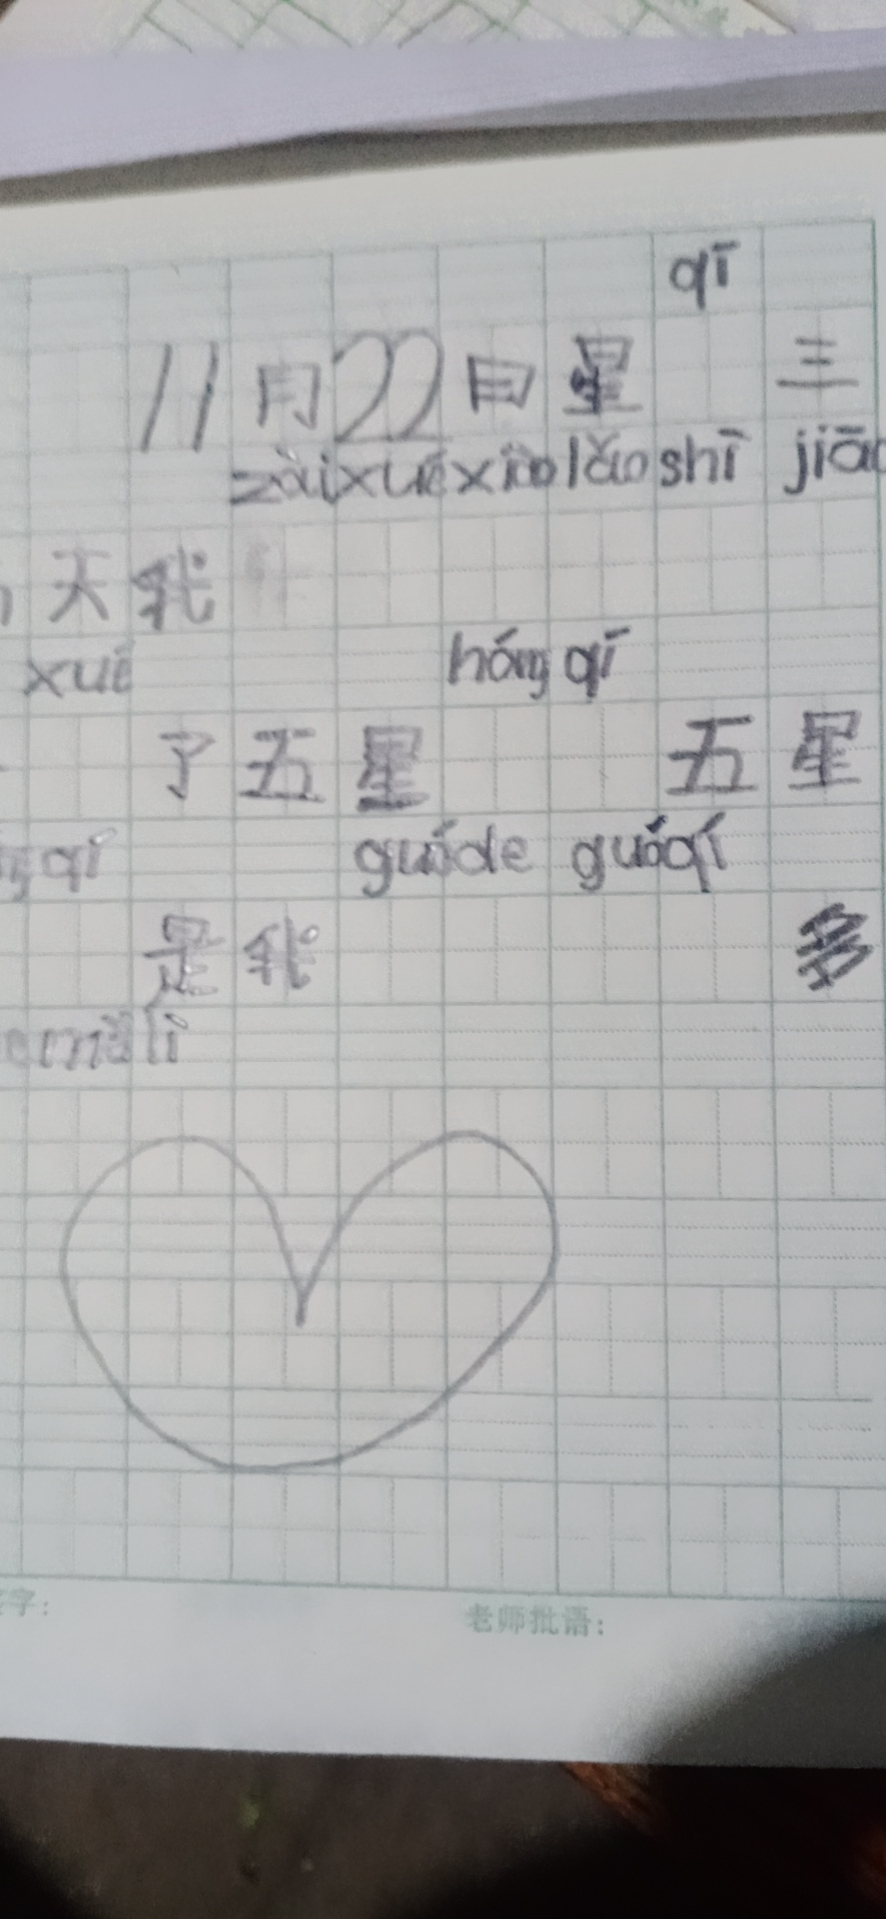 qī
11月22日星 三
zàixuéxiàolǎoshī jiāo
天我
xué hóngqī
了五星 五星
qí guóde guóqí
是我 多
měilì
字：
老师批语：